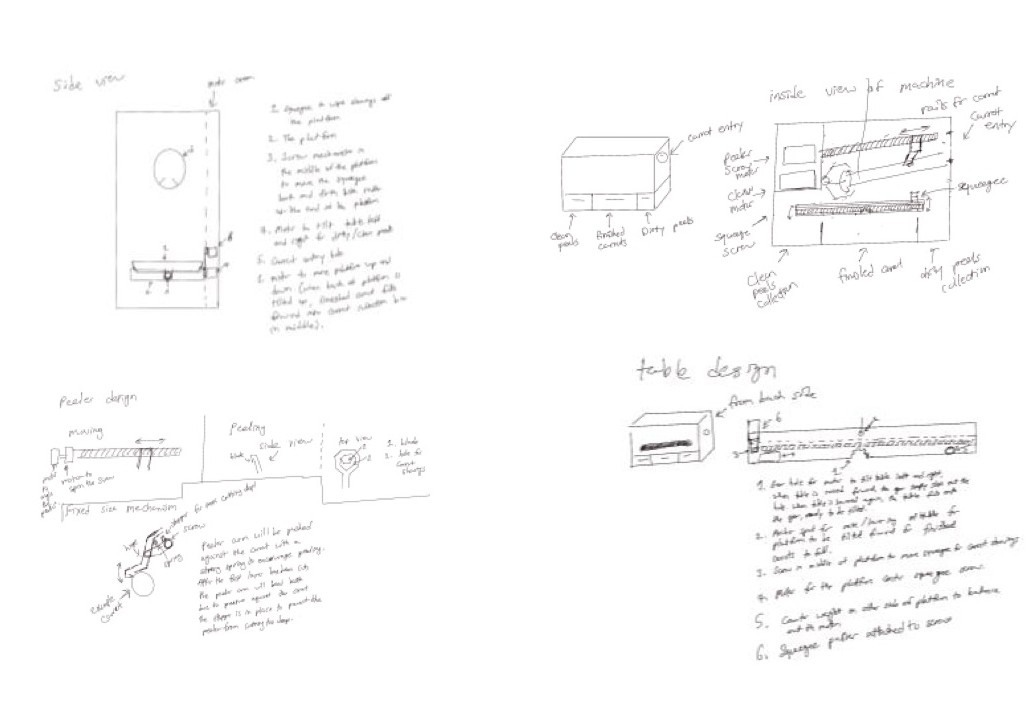 Side view
motor cover
1. Squeegee to wipe shavings off
the platform
2. The platform
3. Screw mechanism in
the middle of the platform
to move the squeegee
back and
the end of the platform
4. Motor to tilt table left
and right for dirty/clean peels
5. Carrot entry hole
6. motor to move platform up and
down (when back of platform is
tilted up, finished carrot falls
forward into carrot collection box
in middle).
inside view of machine
rails for carrot
carrot entry
carrot
entry
peeler
screw
motor
claw
motor
squeegee
squeegee
screw
clean
peels
finished
carrots
Dirty peels
clean
peels
collection
finished carrot
dirty peels
collection
Peeler design
moving
motor to
spin the screw
Peeling
side view
blade
top view
1. blade
2. hole for
carrot
shavings
fixed size mechanism
stopper for over cutting depth
screw
spring
example
carrot
Peeler arm will be pushed
against the carrot with a
strong spring to encourage peeling.
After the first layer has been cut,
the peeler arm will bend back
due to pressure against the carrot
the stopper is in place to prevent the
peeler from cutting too deep.
table design
from back side
1. Gear hole for motor to tilt table left and right,
when table is moved forward, the gear simply slides out the
hole. when table is lowered again, the table falls onto
the gear, ready to be tilted.
2. Anchor spot for raise/lowering of table for
platform to be tilted forward for finished
carrots to fall.
3. Screw in middle of platform to move squeegee for carrot shavings
4. Motor for the platform center squeegee screw.
5. Counter weight on other side of platform to balance
out the motor.
6. Squeegee pusher attached to screw